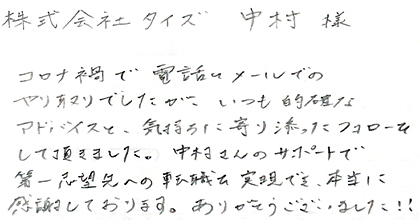 株式会社タイズ 中村 様
コロナ禍で電話とメールでの
やり取りでしたが、いつも的確な
アドバイスと、気持ちに寄り添ったフォローを
して頂きました。中村さんのサポートで
第一志望先への転職を実現でき、本当に
感謝しております。ありがとうございました!!